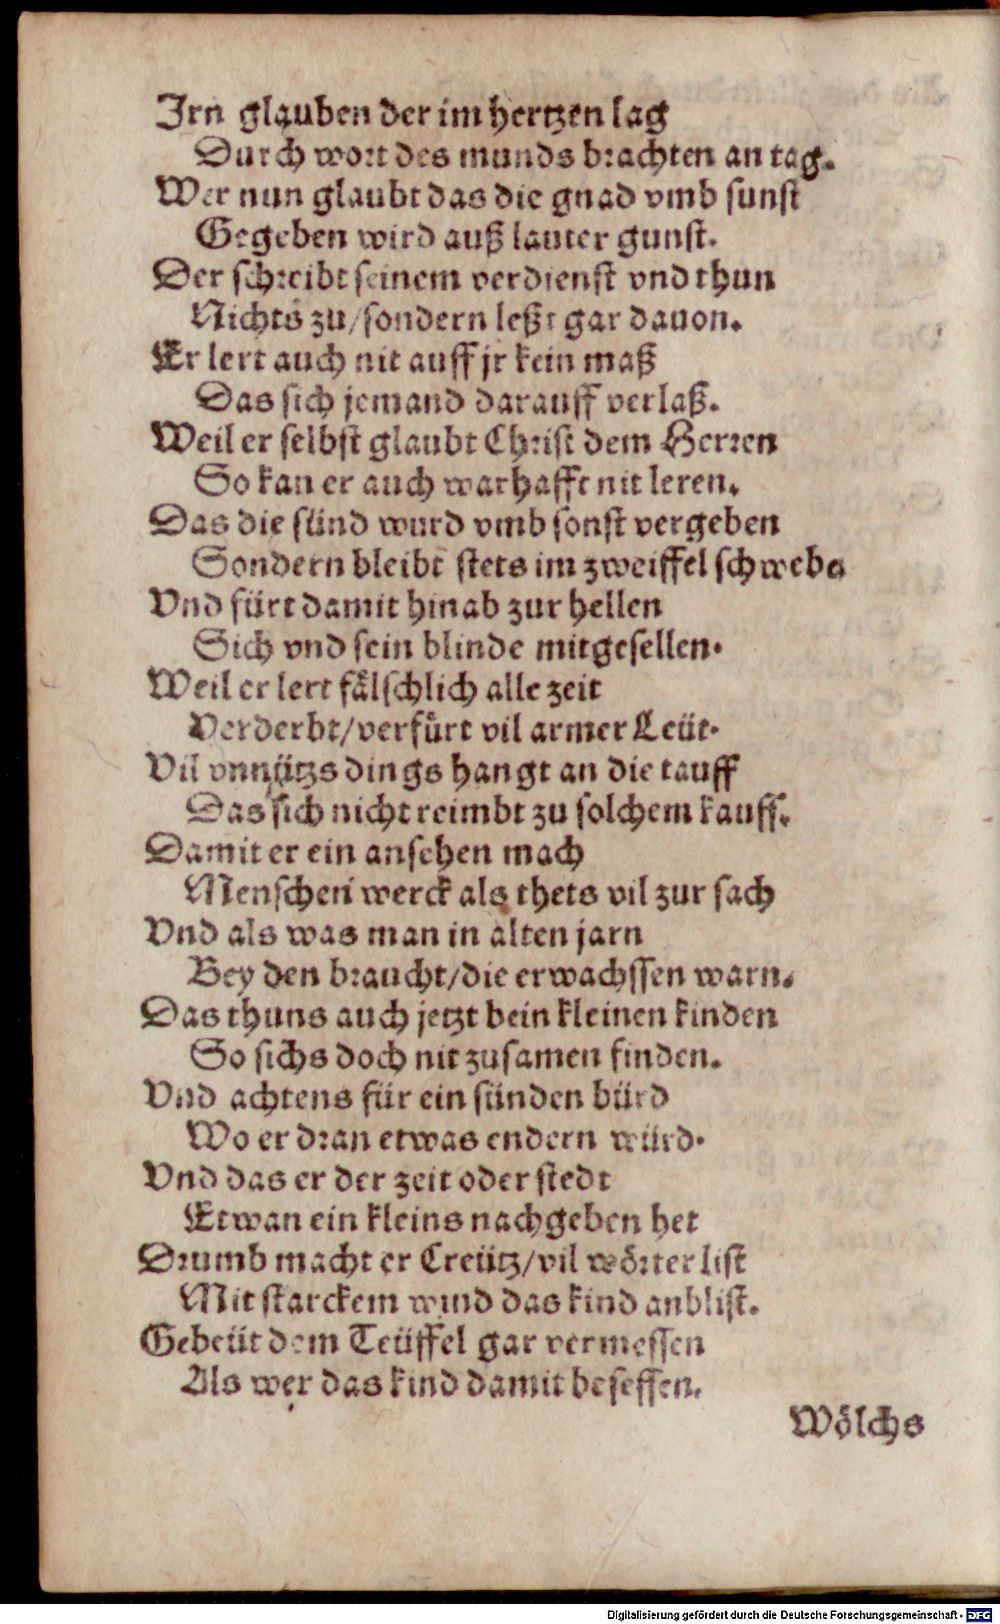 Irn glauben der im hertzen lag
Durch wort des munds brachten an tag.
Wer nun glaubt das die gnad vmb sunst
Gegeben wird auß lauter gunst.
Der schreibt seinem verdienst vnd thun
Nichts zu/sondern leßt gar dauon.
Er lert auch nit auff jr kein maß
Das sich jemand darauff verlaß.
Weil er selbst glaubt Christ dem Herren
So kan er auch warhafft nit leren.
Das die sünd wurd vmb sonst vergeben
Sondern bleibt stets im zweiffel schwebē
Vnd fürt damit hinab zur hellen
Sich vnd sein blinde mitgesellen.
Weil er lert fälschlich alle zeit
Verderbt/verfürt vil armer Leüt.
Vil vnnützs dings hangt an die tauff
Das sich nicht reimbt zu solchem kauff.
Damit er ein ansehen mach
Menschen werck als thets vil zur sach
Vnd als was man in alten jarn
Bey den braucht/die erwachssen warn.
Das thuns auch jetzt bein kleinen kinden
So sichs doch nit zusamen finden.
Vnd achtens für ein sünden bürd
Wo er dran etwas endern würd.
Vnd das er der zeit oder stedt
Etwan ein kleins nachgeben het
Drumb macht er Creütz/vil wörter list
Mit starckem wind das kind anblist.
Gebeüt dem Teüffel gar vermessen
Als wer das kind damit besessen.
Wölchs
Digitalisierung gefördert durch die Deutsche Forschungsgemeinschaft - DFG